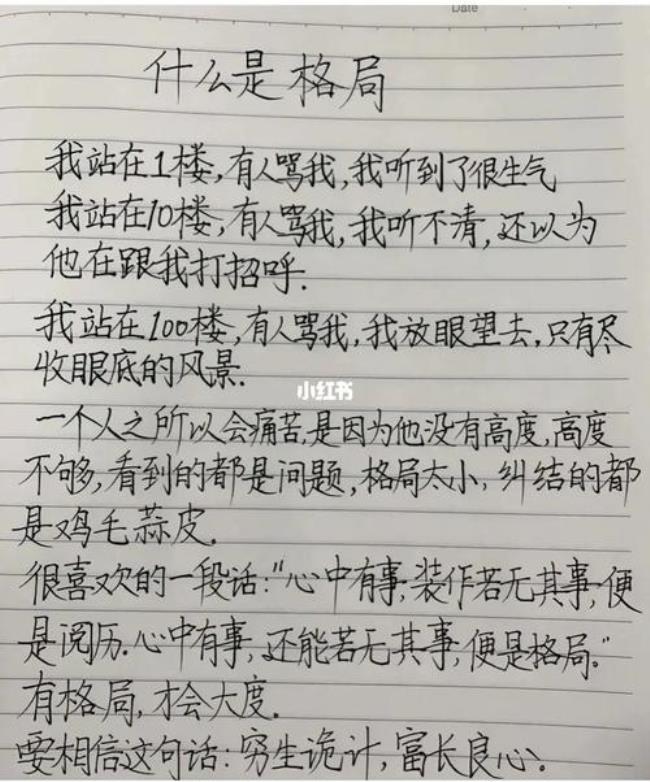 Date
什么是格局
我站在1楼,有人骂我,我听到了很生气
我站在10楼,有人骂我,我听不清,还以为
他在跟我打招呼.
我站在100楼,有人骂我,我放眼望去,只有尽
收眼底的风景.
小红书
一个人之所以会痛苦,是因为他没有高度,高度
不够多,看到的都是问题,格局太小,纠结的都
是鸡毛蒜皮.
很喜欢的一段话:"心中有事,装作若无其事,便
是阅历.心中有事,还能若无其事,便是格局."
有格局,才会大度.
要相信这句话:穷生诡计,富长良心.